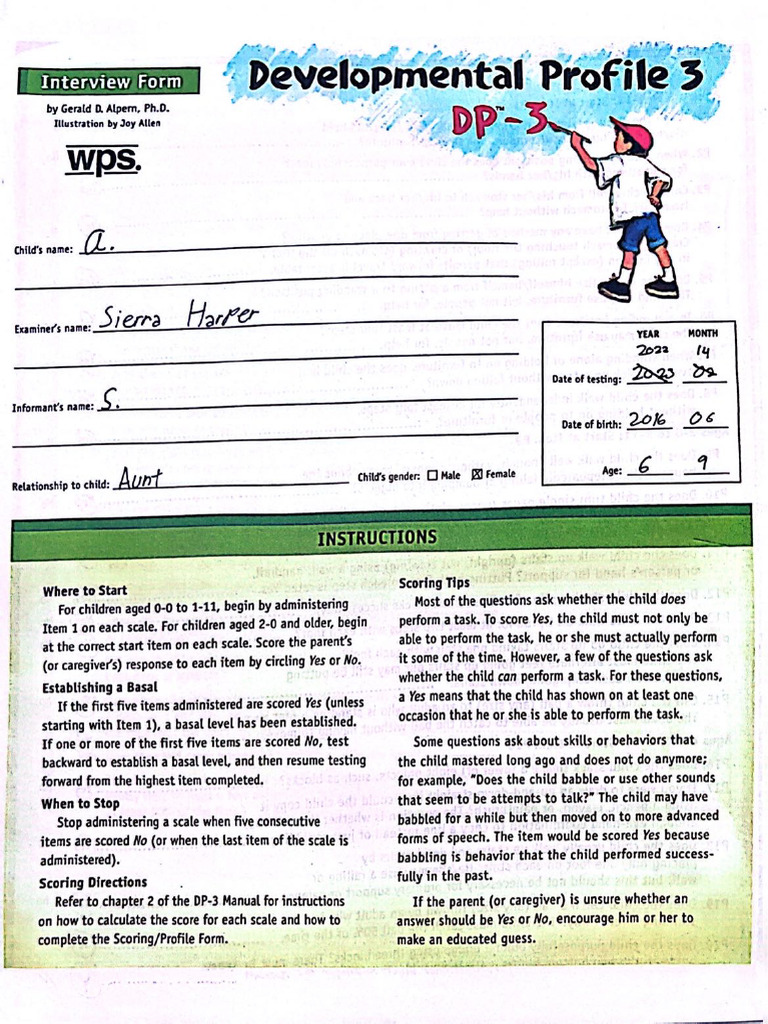 Interview Form
by Gerald D. Alpern, Ph.D.
Illustration by Joy Allen
wps.
Developmental Profile 3
DP™-3
Child's name: a.
Examiner's name: Sierra Harper
Informant's name: S.
Relationship to child: Aunt
Child's gender: ☐ Male ☒ Female
YEAR MONTH
2022 14
Date of testing: 2023 02
Date of birth: 2016 06
Age: 6 9
INSTRUCTIONS
Where to Start
For children aged 0-0 to 1-11, begin by administering
Item 1 on each scale. For children aged 2-0 and older, begin
at the correct start item on each scale. Score the parent's
(or caregiver's) response to each item by circling Yes or No.
Establishing a Basal
If the first five items administered are scored Yes (unless
starting with Item 1), a basal level has been established.
If one or more of the first five items are scored No, test
backward to establish a basal level, and then resume testing
forward from the highest item completed.
When to Stop
Stop administering a scale when five consecutive
items are scored No (or when the last item of the scale is
administered).
Scoring Directions
Refer to chapter 2 of the DP-3 Manual for instructions
on how to calculate the score for each scale and how to
complete the Scoring/Profile Form.
Scoring Tips
Most of the questions ask whether the child does
perform a task. To score Yes, the child must not only be
able to perform the task, he or she must actually perform
it some of the time. However, a few of the questions ask
whether the child can perform a task. For these questions,
a Yes means that the child has shown on at least one
occasion that he or she is able to perform the task.
Some questions ask about skills or behaviors that
the child mastered long ago and does not do anymore;
for example, "Does the child babble or use other sounds
that seem to be attempts to talk?" The child may have
babbled for a while but then moved on to more advanced
forms of speech. The item would be scored Yes because
babbling is behavior that the child performed success-
fully in the past.
If the parent (or caregiver) is unsure whether an
answer should be Yes or No, encourage him or her to
make an educated guess.